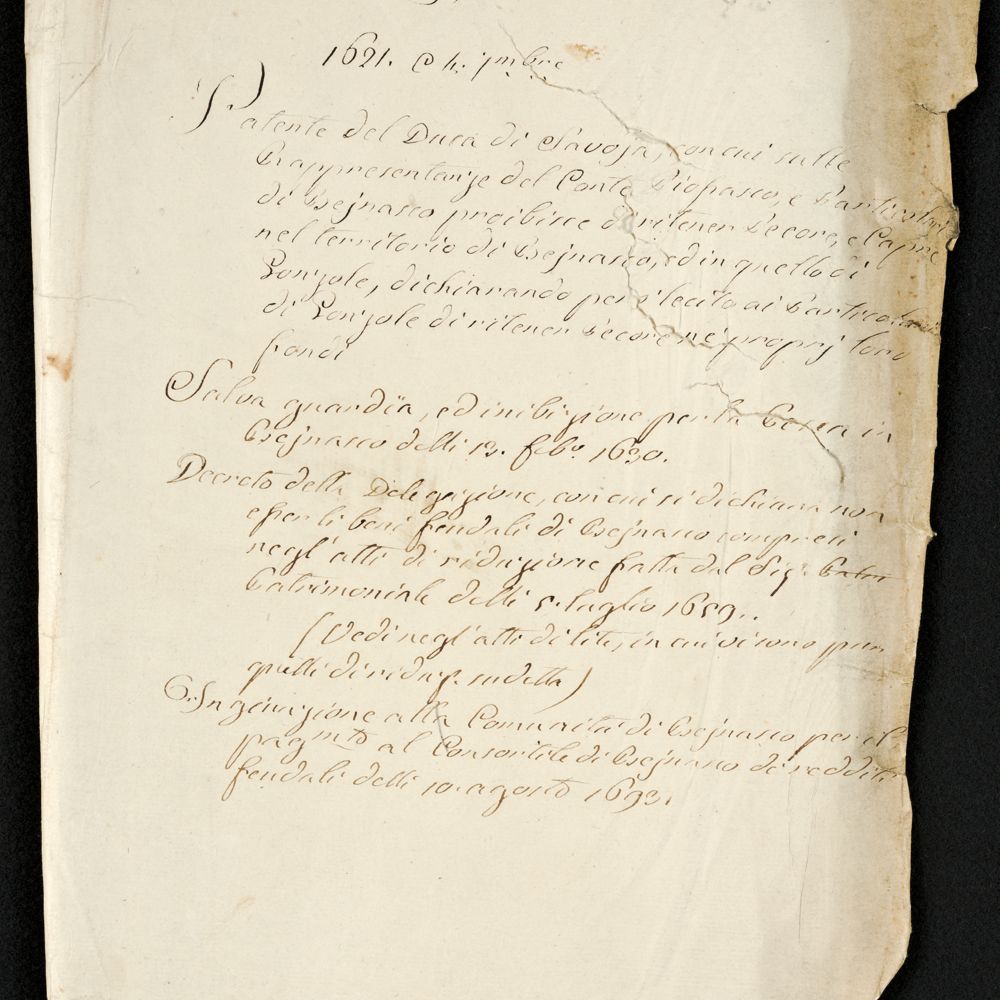 1621.
Patente del Duca di Savoja, con cui sulle
Rappresentanze del Conte Piopasco, e Particolari
di Bejnasco proibisce di ritener Pecore, e Capre
nel territorio di Bejnasco, ed in quello di
Ponzole, dichiarando per lecito ai Particolari
di Ponzole di ritener Pecore ne' proprj loro
fondi
Salva guardia, ed inibizione per la Caccia in
Bejnasco delli 12. febº. 1630.
Decreto della Delegazione, con cui si dichiara non
esser li beni feudali di Bejnasco compresi
negl'atti di riduzione fatta dal Sig.
Patrimoniale delli 5. luglio 1659.
(Vedi negl'atti di lite, in cui vi sono pur
quelli di riduz. sudetta)
6. Ingiunzione alla Comunità di Bejnasco per il
pagmto al Consortile di Bejnasco de' redditi
feudali delli 10. agosto 1693.